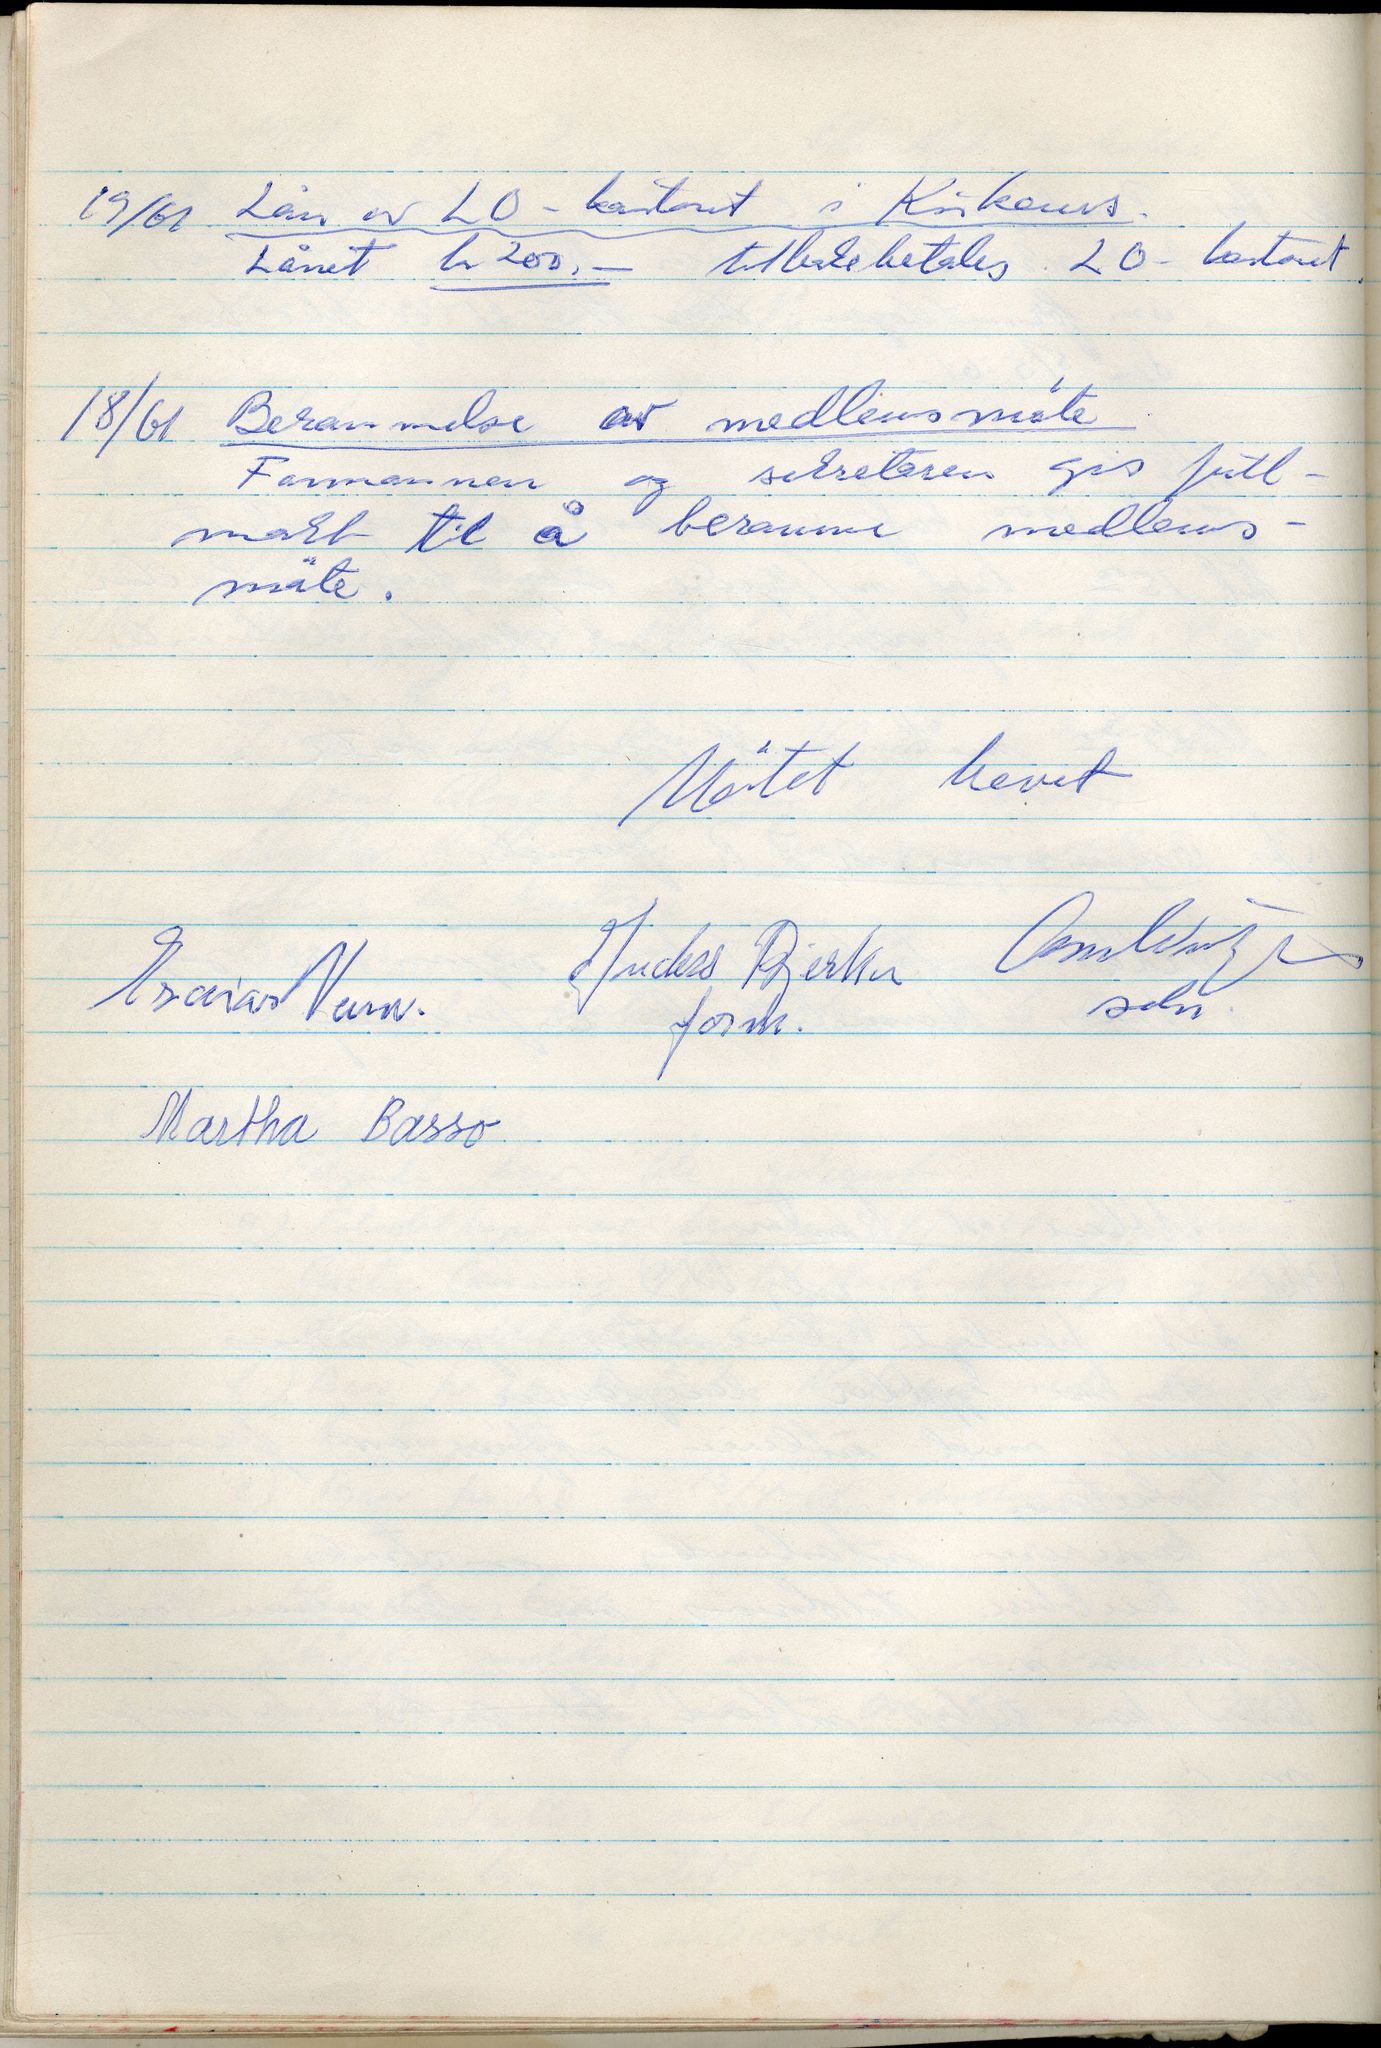 19/61 Lån av LO-kontoret i Kirkenes.
Lånet kr 200,- tilbakebetales LO-kontoret.
18/61 Berammelse av medlemsmöte
Formannen og sekretæren gis full-
makt til å beramme medlems-
möte.
Mötet hevet
Esaias Anders Bjerkn
form. sekr.
Martha Basso